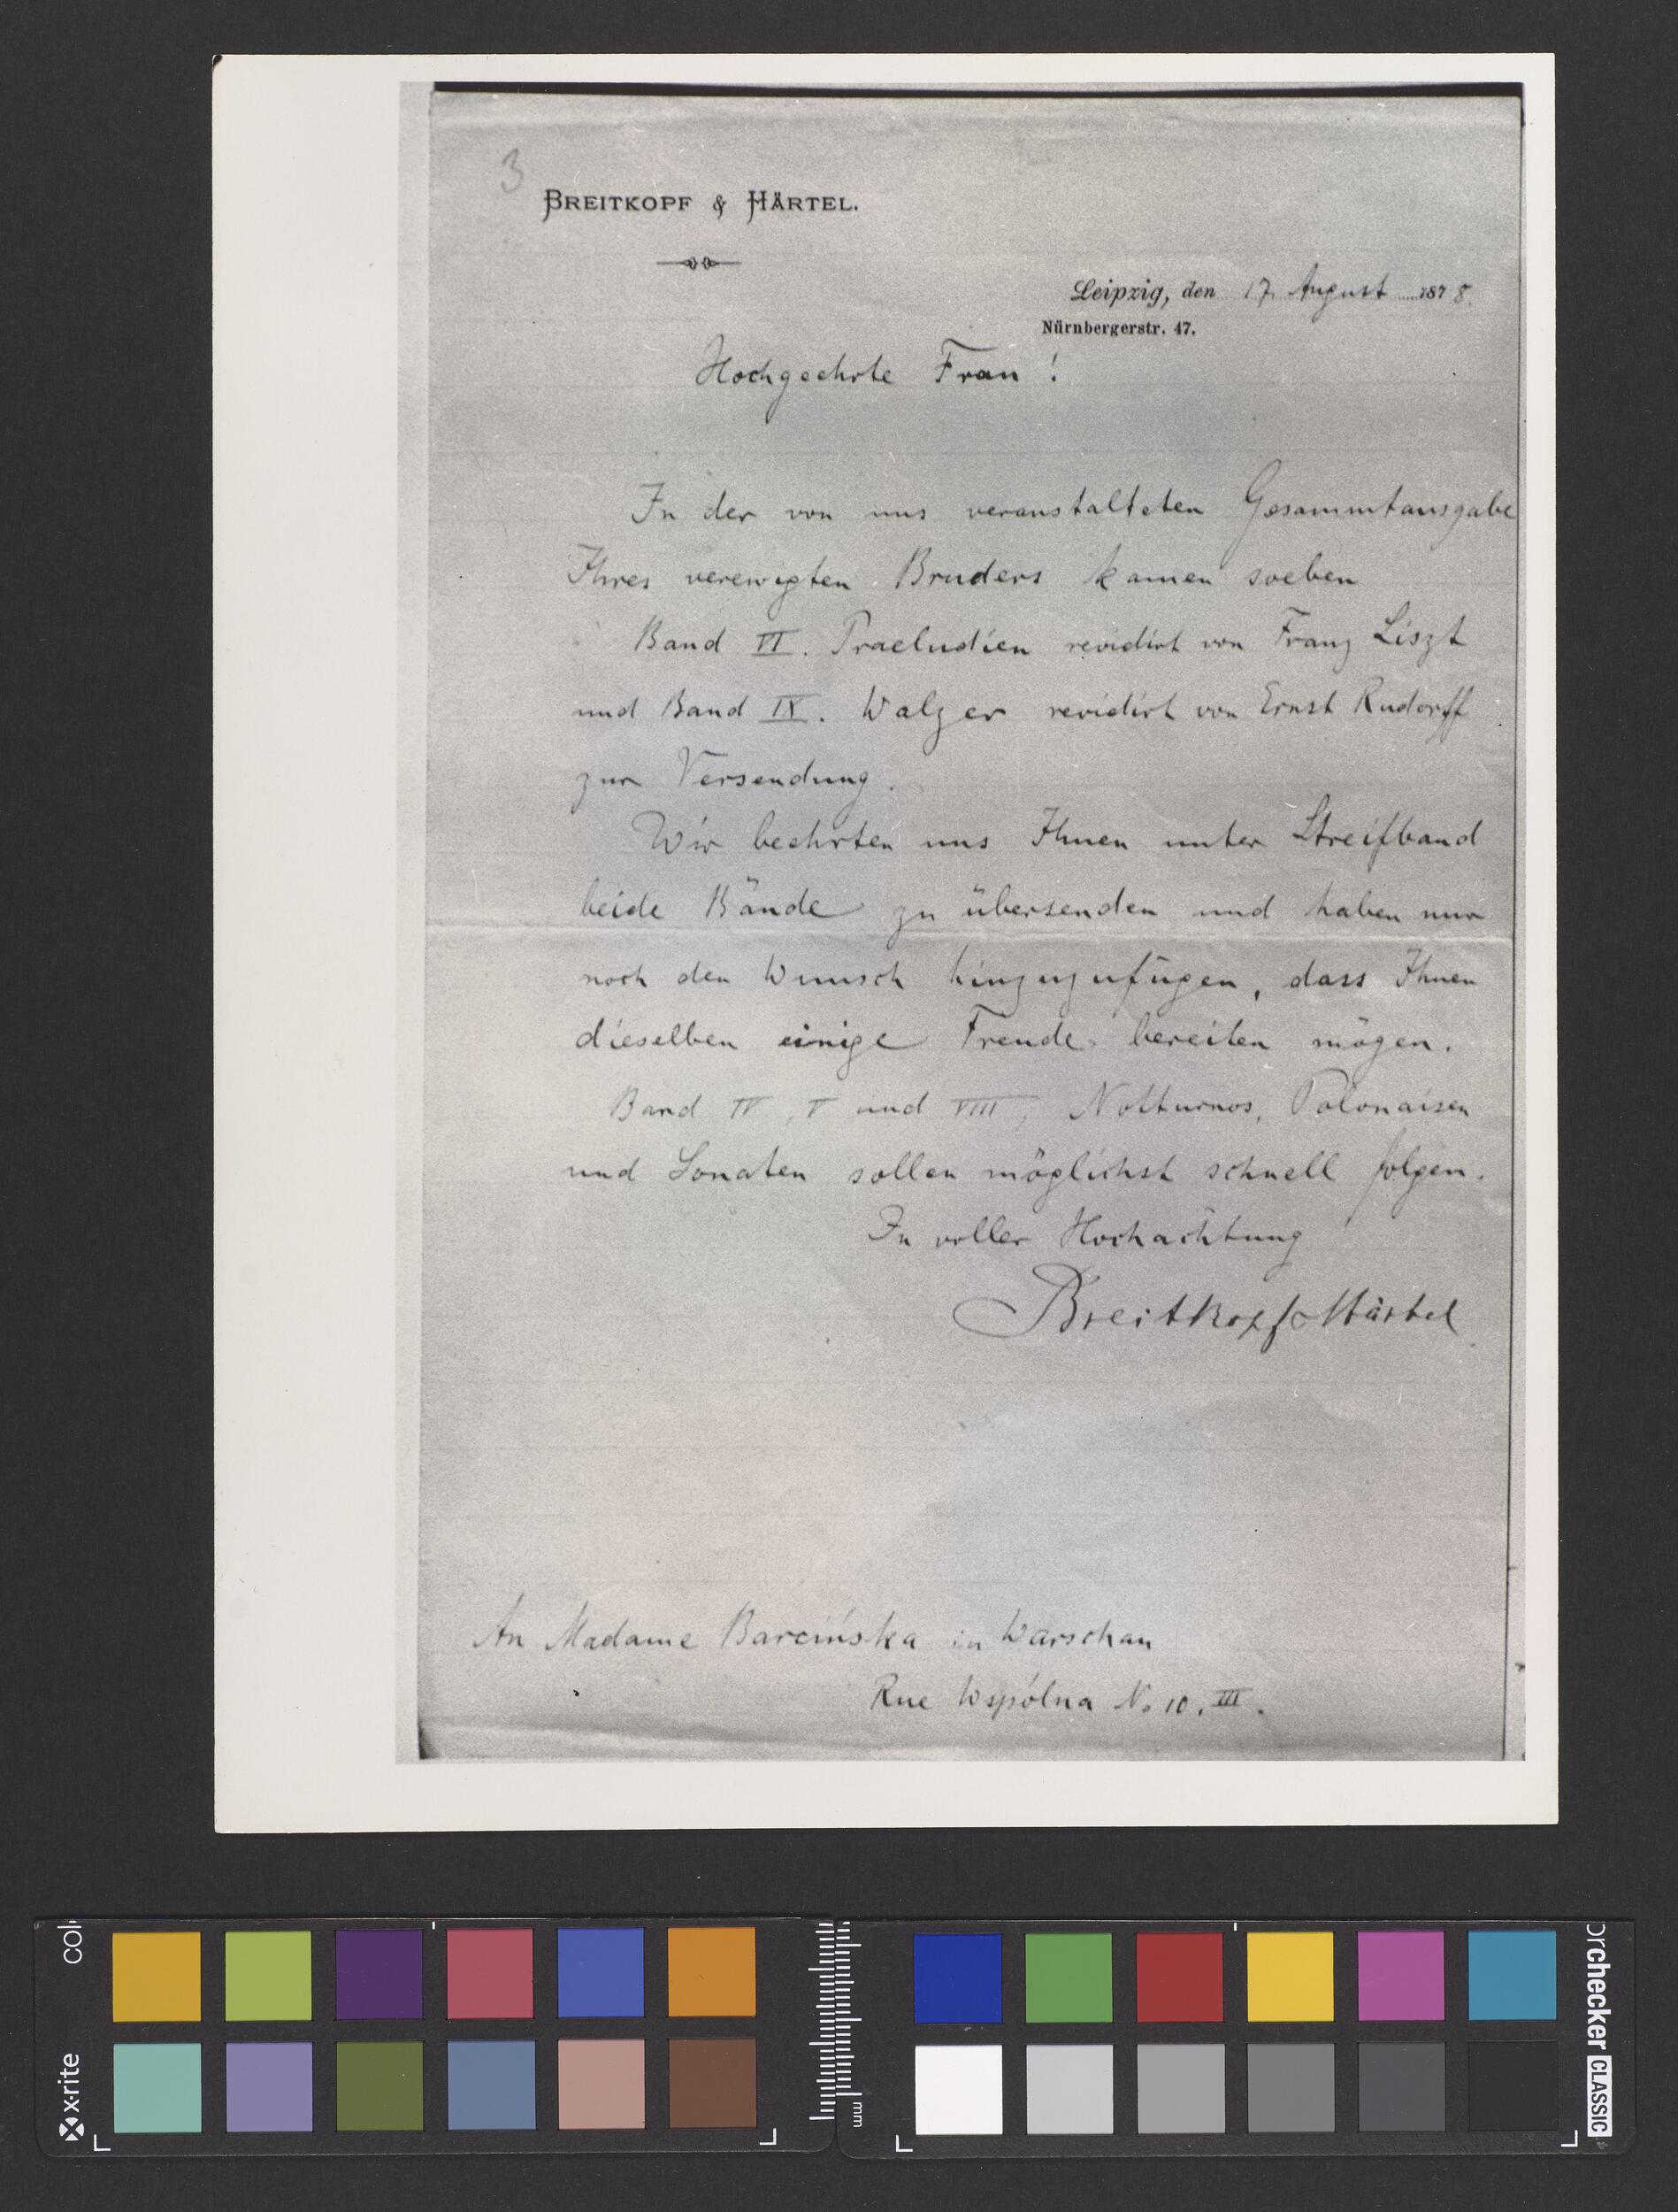 3
BREITKOPF & HÄRTEL.
Leipzig, den 17. August 1878.
Nürnbergerstr. 47.
Hochgeehrte Frau!
In der von uns veranstalteten Gesammtausgabe
Ihres verewigten Bruders kamen soeben
Band VI. Praeludien revidirt von Franz Liszt
und Band IX. Walzer revidirt von Ernst Rudorff
zur Versendung.
Wir beehrten uns Ihnen unter Streifband
beide Bände zu übersenden und haben nur
noch den Wunsch hinzuzufügen, dass Ihnen
dieselben einige Freude bereiten mögen.
Band IV, V und VIII, Notturnos, Polonaisen
und Sonaten sollen möglichst schnell folgen.
In voller Hochachtung
Breitkopf & Härtel
An Madame Barcińska in Warschau
Rue Wspólna No 10. III.
x-rite
colorchecker CLASSIC
mm